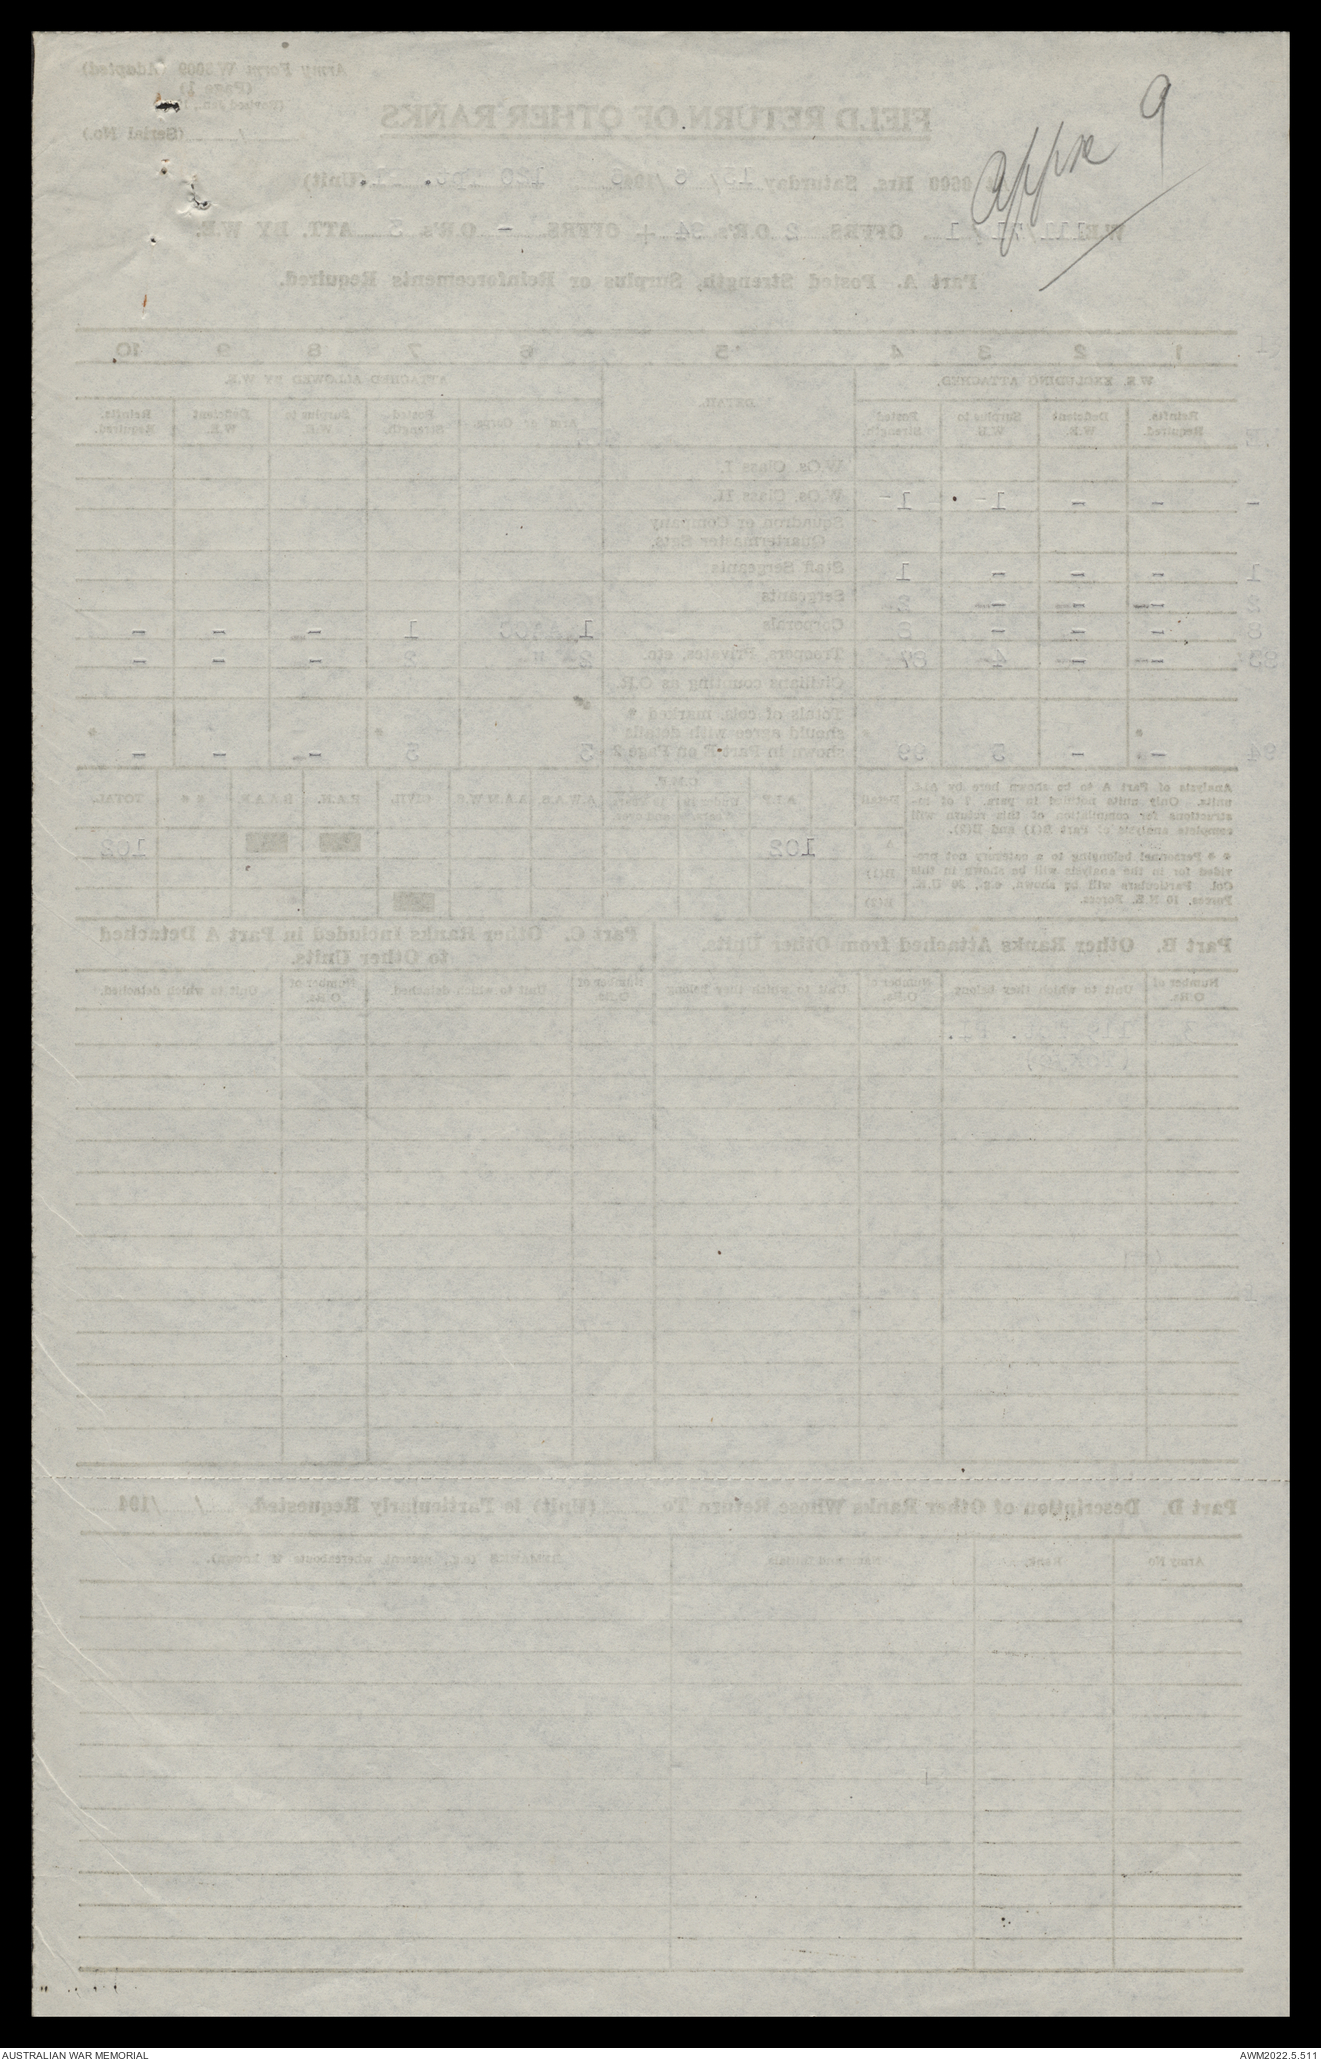 Appx 9
Army Form W3009 (Adapted)
(Page 1)
(Serial No.)
FIELD RETURN OF OTHER RANKS
0600 Hrs. Saturday
(Unit)
OFFRS 2 O.R's 94 + OFFRS. - O.R's 3 ATT. BY W.E.
Part A. Posted Strength, Surplus or Reinforcements Required.
1 2 3 4 5 6 7 8 9 10
W.E. EXCLUDING ATTACHED. DETAIL. ATTACHED ALLOWED BY W.E.
Reinfts. Required. Deficient W.E. Surplus to W.E. Posted Strength. Arm or Corps. Posted Strength. Surplus to W.E. Deficient W.E. Reinfts. Required.
W.Os. Class I.
- - - 1- 1- W.Os. Class II.
Squadron or Company
Quartermaster Sgts.
1 - - - 1 Staff Sergeants
2 - - - 2 Sergeants
8 - - - 8 Corporals 1 1 - - -
- - 4 87 Troopers, Privates, etc. 2 " 2 - - -
Civilians counting as O.R.
Totals of cols. marked *
should agree with details
94 - - 5 99 shown in Part E on Page 2 3 3 - - -
Analysis of Part A to be shown here by A.I.F.
units. Only units notified in para. 7 of in-
structions for compilation of this return will
complete analysis of Part B(1) and B(2).
* * Personnel belonging to a category not pro-
vided for in the analysis will be shown in this
Col. Particulars will be shown, e.g., 30 U.K.
Forces, 10 N.E. Forces.
Detail A.I.F. C.M.F. A.W.A.S. A.A.M.W.S. CIVIL R.A.N. R.A.A.F. * * TOTAL.
A 102 102
B(1)
B(2)
Part B. Other Ranks Attached from Other Units.
Part C. Other Ranks Included in Part A Detached
to Other Units.
Number of O.Rs. Unit to which they belong. Number of O.Rs. Unit to which they belong Number of O.Rs. Unit to which detached. Number of O.Rs. Unit to which detached.
3
Part D. Description of Other Ranks Whose Return To (Unit) is Particularly Requested. / /194
Army No. Rank. Name and Initials REMARKS (e.g., present whereabouts if known).
AUSTRALIAN WAR MEMORIAL
AWM2022.5.511